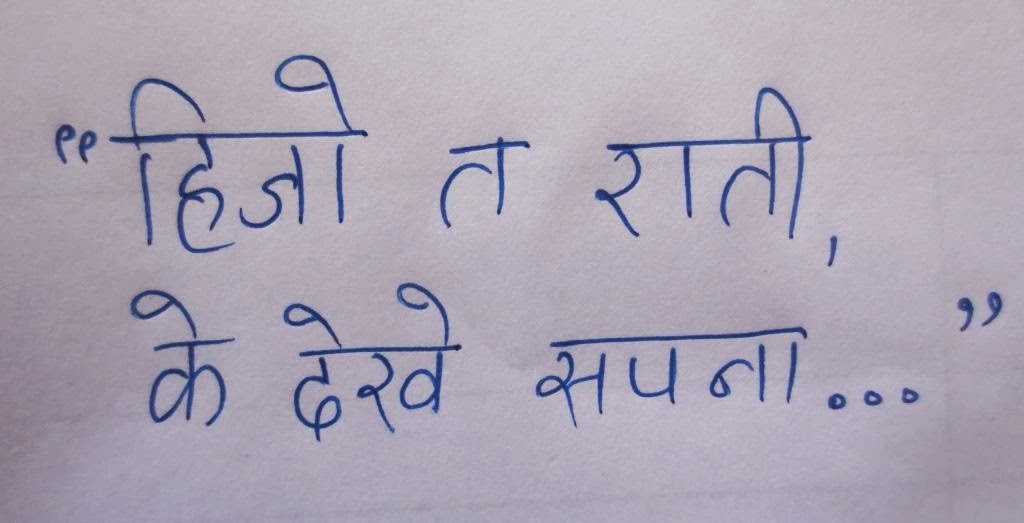 “हिजो त राती,
के देखे सपना...”